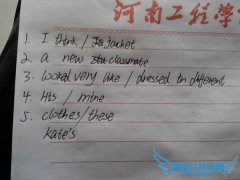 河南工程学
1. I think / Jacket
2. a new classmate
3. looked very like / dressed in different
4. His / mine
5. clothes/these
kate's